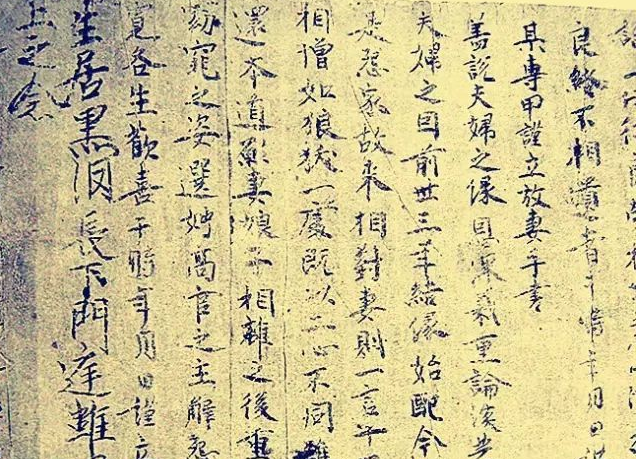 良緣不相遺書于時年月日
某專甲謹立放妻手書
蓋説夫婦之緣恩深義重論談共
夫婦之因前世三年結緣始配今
是怨家故来相對妻則一言十
相憎如狼犹一處既以二心不同難
還本道願妻娘子相離之後重
窕之姿選娉高官之主解怨
各生歡喜于時年月日謹立
生居黑泪長下門庭離
上之念